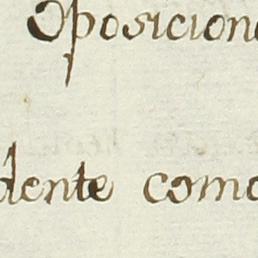 Oposicion
dente como